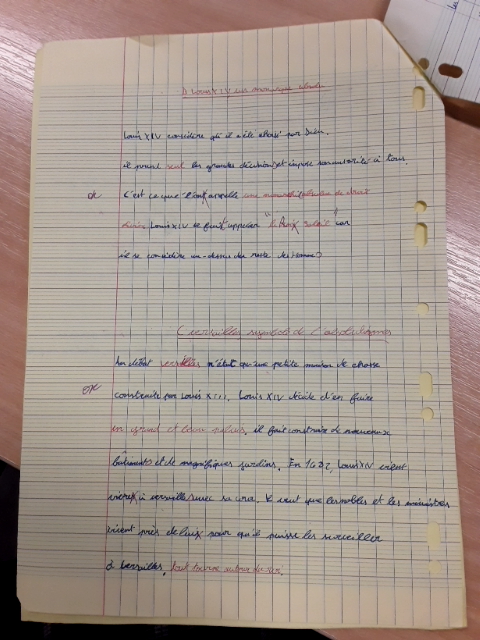 Louis XIV un monarque absolu
Louis XIV considère qu'il a été choisi par Dieu.
il prend seul les grandes décision et impose son autorité à tous.
C'est ce que l'on appelle une monarchie de droit
divin Louis XIV se fait appeler "le Roi soleil" car
il se considère au-dessus du reste des Hommes
C versailles symbole de l'absolutisme
Au début versailles n'était qu'une petite maison de chasse
construite par Louis XIII, Louis XIV décide d'en faire
un grand et beau palais. il fait construire de nouveaux
bâtiments et de magnifiques jardins. En 1682, Louis XIV vient
vivre à versaille avec sa cour. Il veut que les nobles et les ministres
vivent près de lui pour qu'il puisse les surveiller
à Versailles, tout tourne autour du roi.